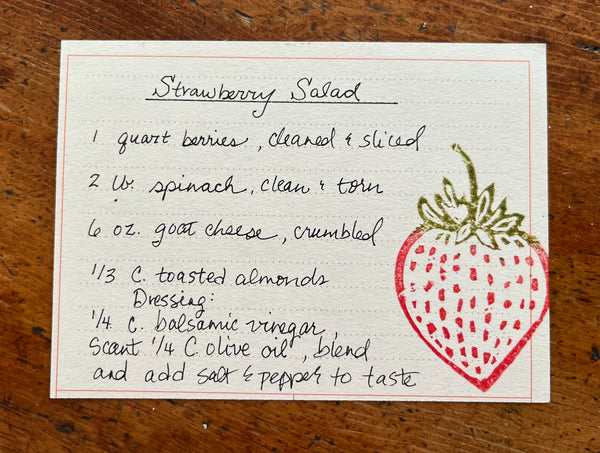 Strawberry Salad
1 quart berries, cleaned & sliced
2 lb. spinach, clean & torn
6 oz. goat cheese, crumbled
1/3 C. toasted almonds
Dressing:
1/4 C. balsamic vinegar
Scant 1/4 C olive oil, blend
and add salt & pepper to taste